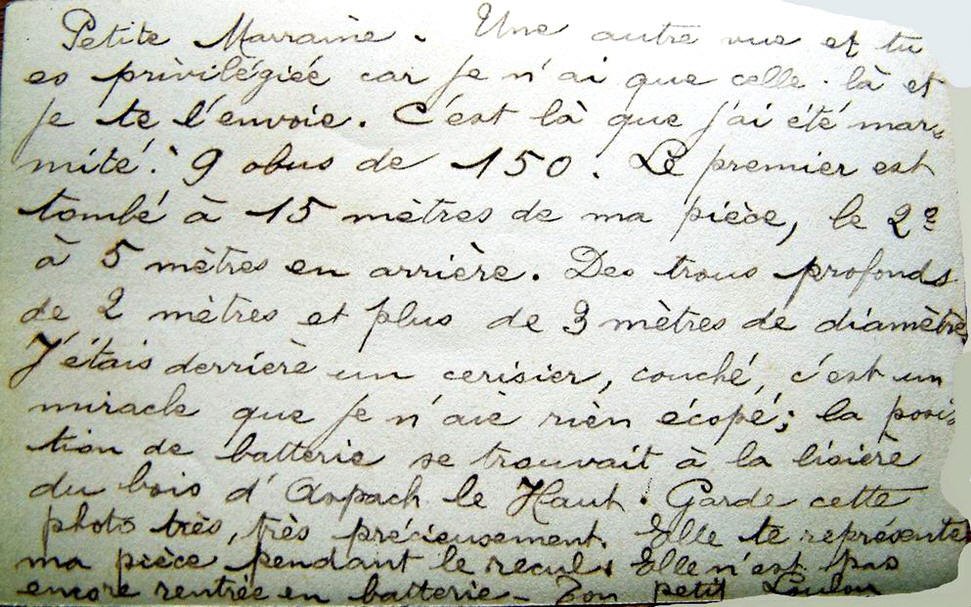 Petite Marraine. Une autre vue et tu
es privilégiée car je n'ai que celle-là et
je te l'envoie. C'est là que j'ai été mar-
mité : 9 obus de 150. Le premier est
tombé à 15 mètres de ma pièce, le 2e
à 5 mètres en arrière. Des trous profonds
de 2 mètres et plus de 3 mètres de diamètre.
J'étais derrière un cerisier, couché, c'est un
miracle que je n'aie rien écopé ; la posi-
tion de batterie se trouvait à la lisière
du bois d'Aspach le Haut. Garde cette
photo très, très précieusement. Elle te représente
ma pièce pendant le recul. Elle n'est pas
encore rentrée en batterie - Ton petit Loulou